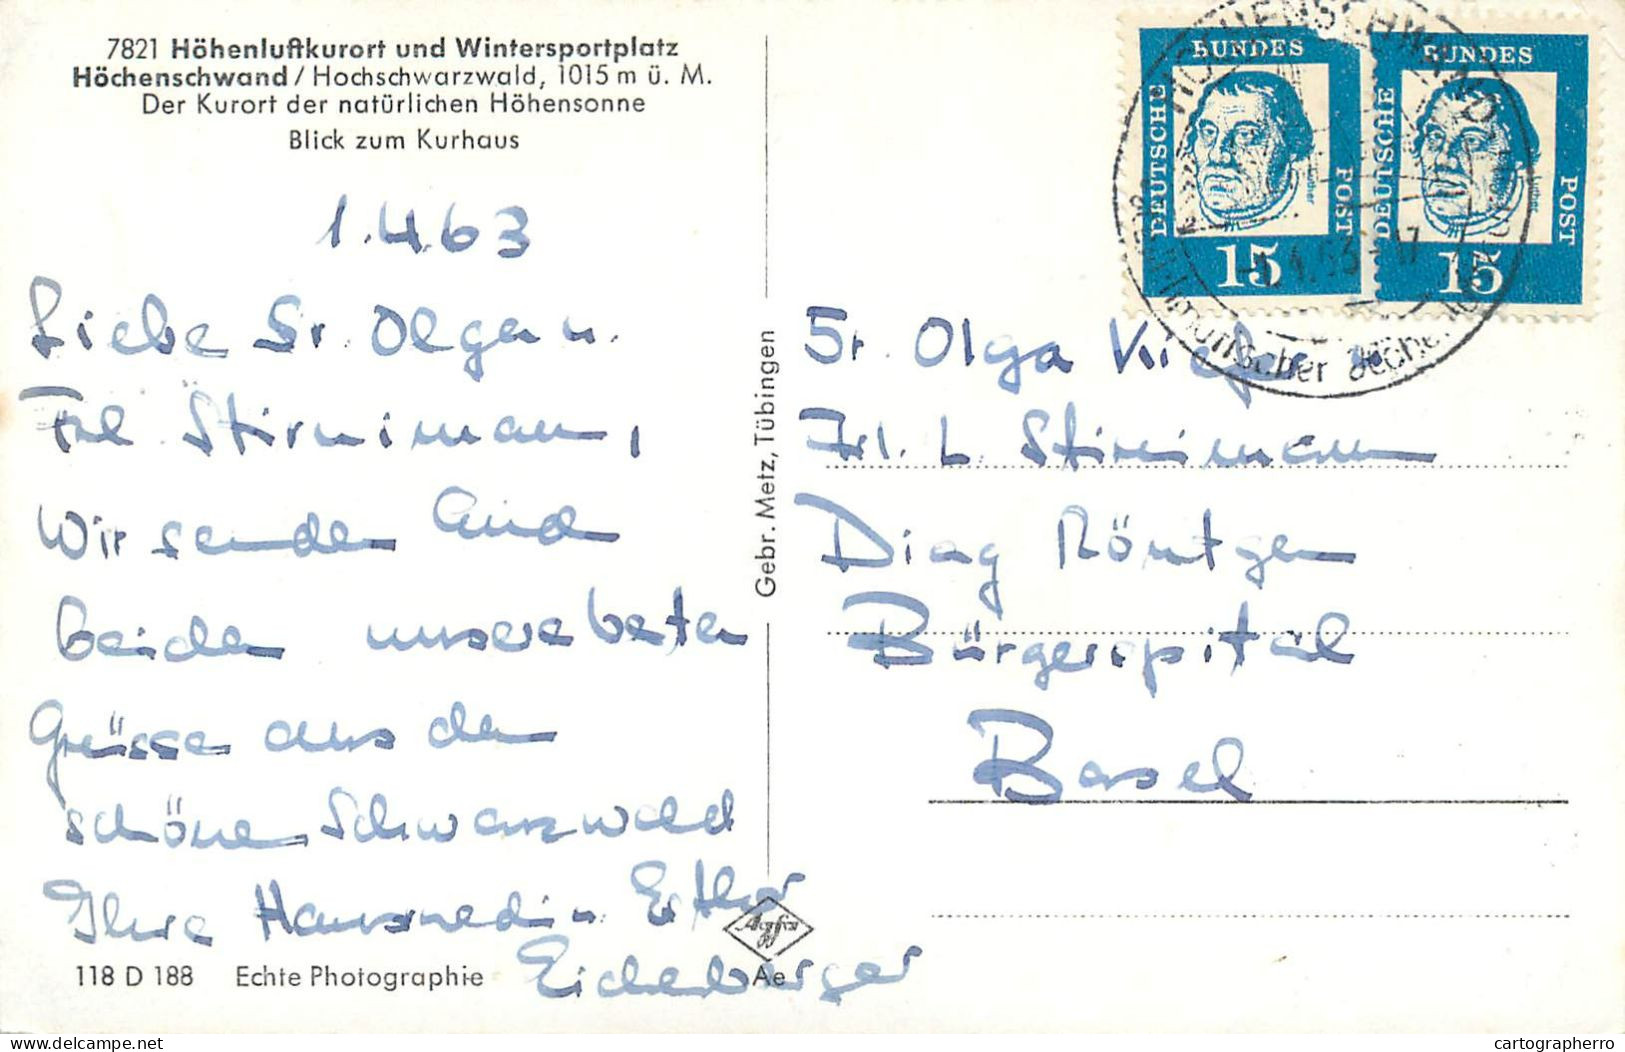 7821 Höhenluftkurort und Wintersportplatz
Höchenschwand / Hochschwarzwald, 1015 m ü. M.
Der Kurort der natürlichen Höhensonne
Blick zum Kurhaus
1.4.63
Liebe Sr. Olga u.
Frl. Stirnimann,
Wir senden Euch
beiden unsere besten
Grüsse aus dem
schönen Schwarzwald
Ihre Hausmed in Esther
Eichenberger
118 D 188 Echte Photographie
Agfa
Ae
Gebr. Metz, Tübingen
DEUTSCHE BUNDES POST
Luther
15
DEUTSCHE BUNDES POST
Luther
15
HÖCHENSCHWAND
Sr. Olga Kiefer u
Frl. L. Stirnimann
Diag Röntgen
Bürgerspital
Basel
cartographerro
delcampe.net